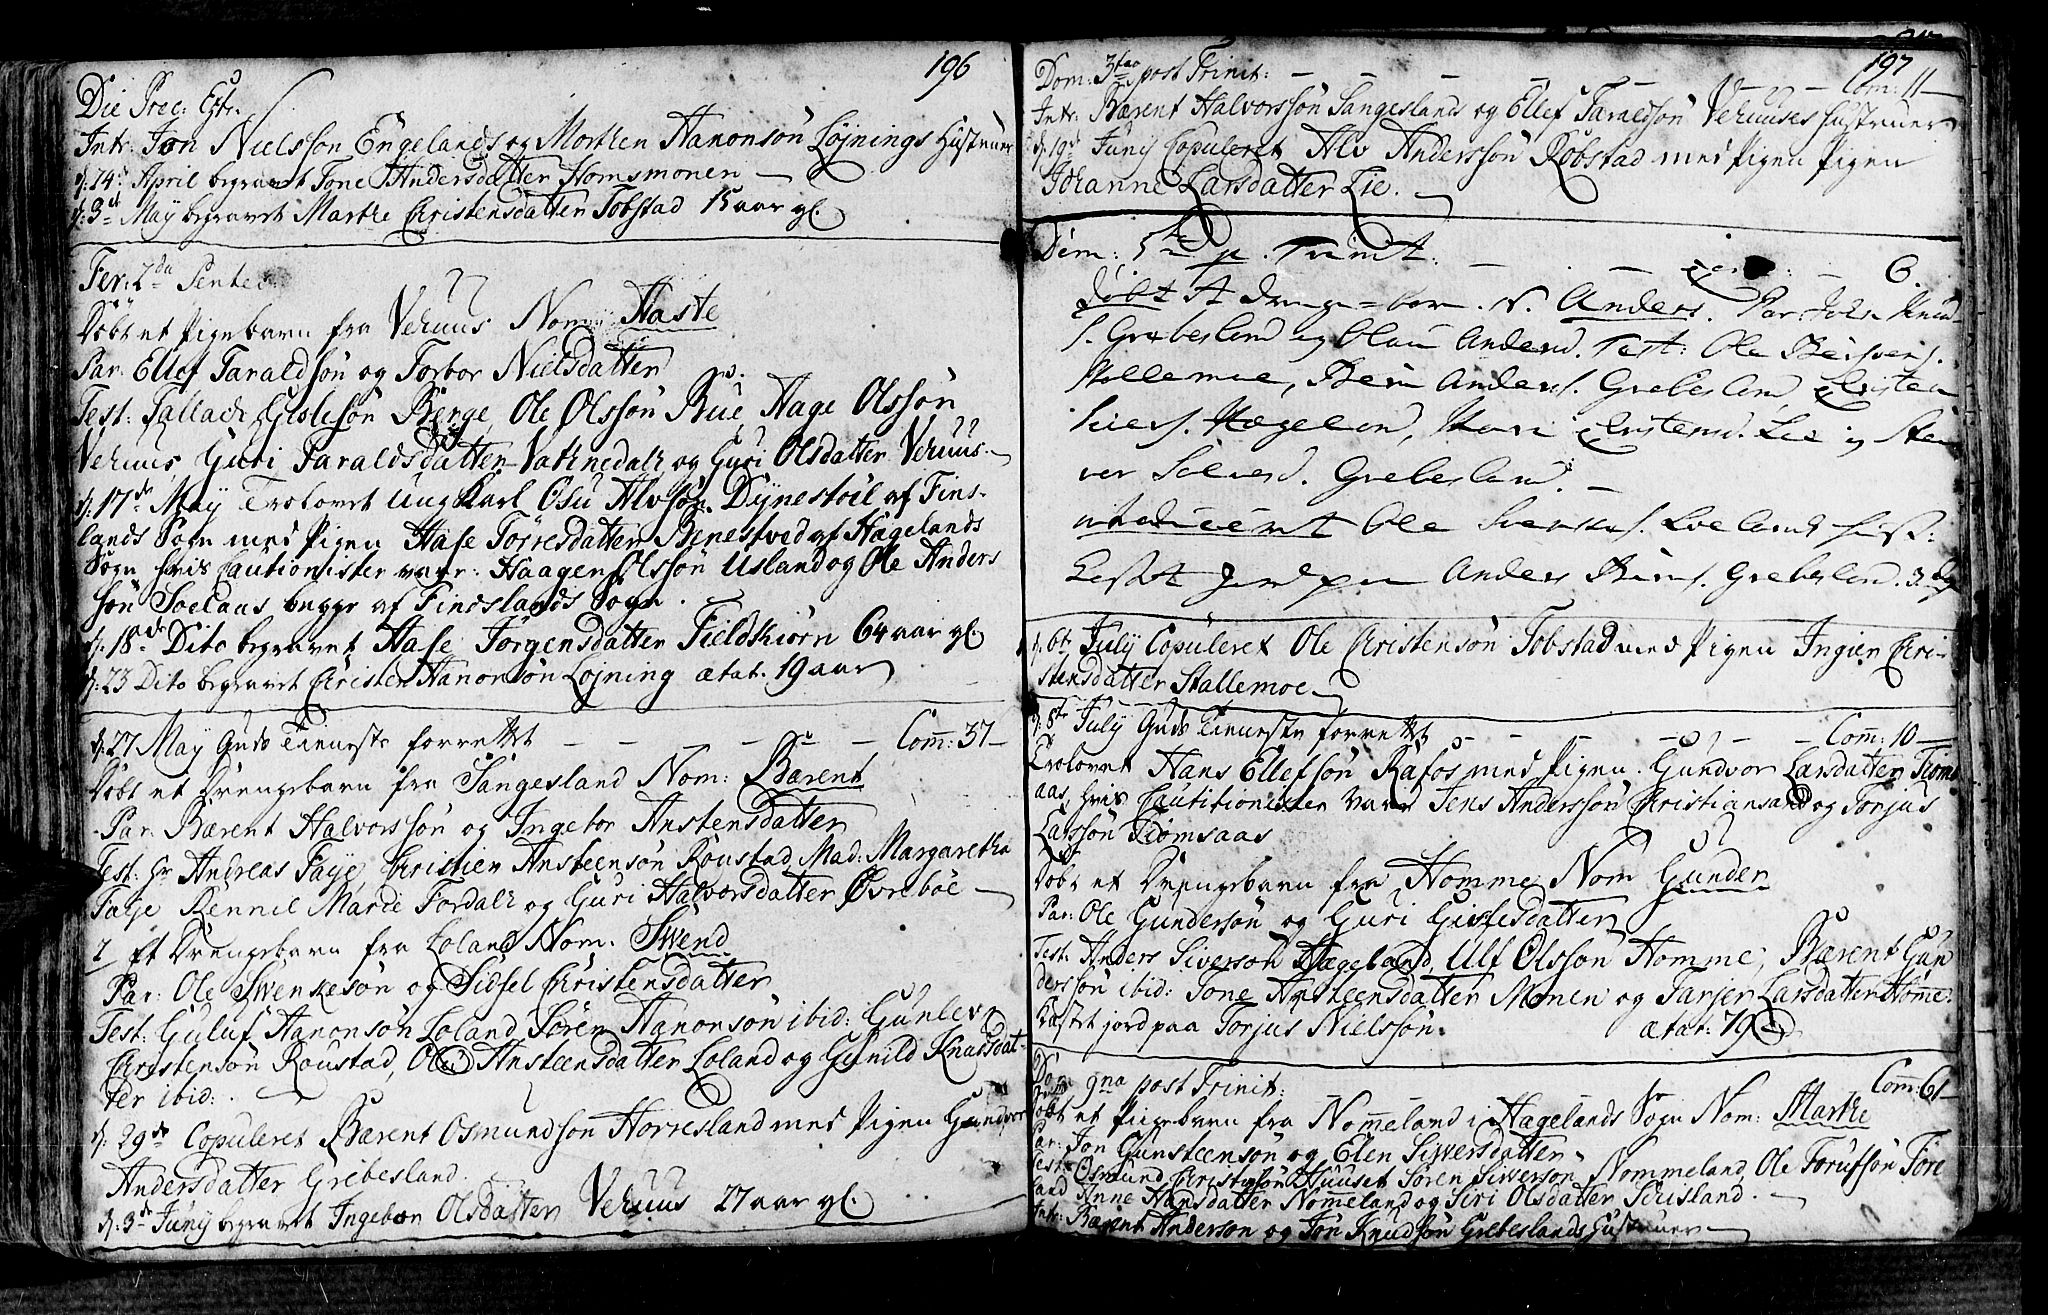 196
Die Prec: Extr.
Intr: Jon Nielssön Engelands og Morthen Aanonsön Løjnings Hustruer
d: 24de April begravet Tone Andersdatter Homsmonen —
d: 3de May begravet Marthe Christensdatter Tobstad 15 aar gl.
Fer: 2da Pentec:
Døbt et Pigebarn fra Vehuus Nom: Aaste
Par: Ellef Taraldsön og Torbor Nielsdatter
Test: Tallack Gislesön Berge, Ole Olssön Bue, Aage Olssön
Vehuus, Guri Taraldsdatter Vathnedalk og Guri Olsdatter Vehuus.
d: 17de May Trolovet Ung Karl Osu Alvsön Dynestöil af Fins-
lands Sogn med Pigen Aase Tørresdatter Benestved af Hægelands
Sogn hvis Cautionister vare: Haagen Olssön Usland og Ole Anders
sön Soelaas begge af Findslands Sogn.
d. 18de Dito begravet Aase Jörgensdatter Fieldskiörn 64 aar gl.
d: 23 Dito begravet Christen Aanonsön Løjning ætat. 19 aar
d: 27 May Guds Tieneste forrettet — — — — — Com: 37—
Døbt et Drengebarn fra Sangesland Nom: Bærent
Par: Bærent Halvorssön og Ingebor Anstensdatter
Test: Hr Andreas Faye, Christen Ansteensön Roustad, Mad: Margaretha
Faye Rennil Marie Fordalk og Guri Halvorsdatter Øvrebøe —
2 Et Drengebarn fra Loland Nom: Swend
Par: Ole Swenkesön og Sidsel Christensdatter
Test: Guluf Aanonsön Loland, Sören Aanonsön ibid: Gunlev
Christensön Roustad, Ansteensdatter Loland og Gunild Knudsdat-
ter ibid:
d: 29de Copuleret Bærent Osmundsön Horresland med Pigen Gundvor
Andersdatter Grebesland.
d: 3de Juny begravet Ingebor Olsdatter Vehuus 27 aar gl.
197
Dom: 3tia post Trinit: — — — — — — Com: 11—
Intr: Bærent Halvorssön Sangeslands og Ellef Taraldsön Vehuuses Hustruer
d: 19de Junij Copuleret Alv Anderssön Röbstad med Pigen Pigen
Johanne Larsdatter Lie. —
Dom: 5te p. Trinit: — — — Com: — 6.
døbt et drenge-barn. N. Anders. Par. John Knud-
s. Grebesland og Olau Andersd. Test: Ole
Stallemoe, Anders. Grebesland, Christen
Sivers. Hægeland, Kari Christensd. Lie og
Grebesland. —
introduceret Ole Svenkes. Loelands Hust:
Castet Jord paa Anders Grebesland. 3
d. 6te July Copuleret Ole Christensön Tobstad med Pigen Ingier Chri-
stensdatter Stallemoe —
d. 8te July Guds Tieneste forrettet — — — — — — Com: 10—
Trolovet Hans Ellefsön Rafos med Pigen Gundvor Larsdatter Tioms-
aas, hvis Cautitionister vare Jens Anderssön Christiansand og Torjus
Larssön Tiomsaas
Døbt et Drengebarn fra Homme Nom Gunder
Par: Ole Gundersön og Guri Gislesdatter
Test: Anders Siversön Hægeland, Ulf Olsson Homme, Bærent Gun
derssön ibid: Tone Ansteensdatter Monen og Tarjer Larsdatter Homme.
Kastet jord paa Torjus Nielssön. ætat: 79
Dom 9na post Trinit: Com: 61—
Døbt et Pigebarn fra Nomeland i Hagelands Sogn Nom: Marthe
Par: Jon Gunsteensön og Elen Siversdatter.
Test: Osmund Huuset Sören Siversön Nommeland, Ole Torufsön
land, Anne Hansdatter Nomeland og Siri Olsdatter —
Intr: Bærent Anderson og Jon Knudsön Grebeslands Hustruer —